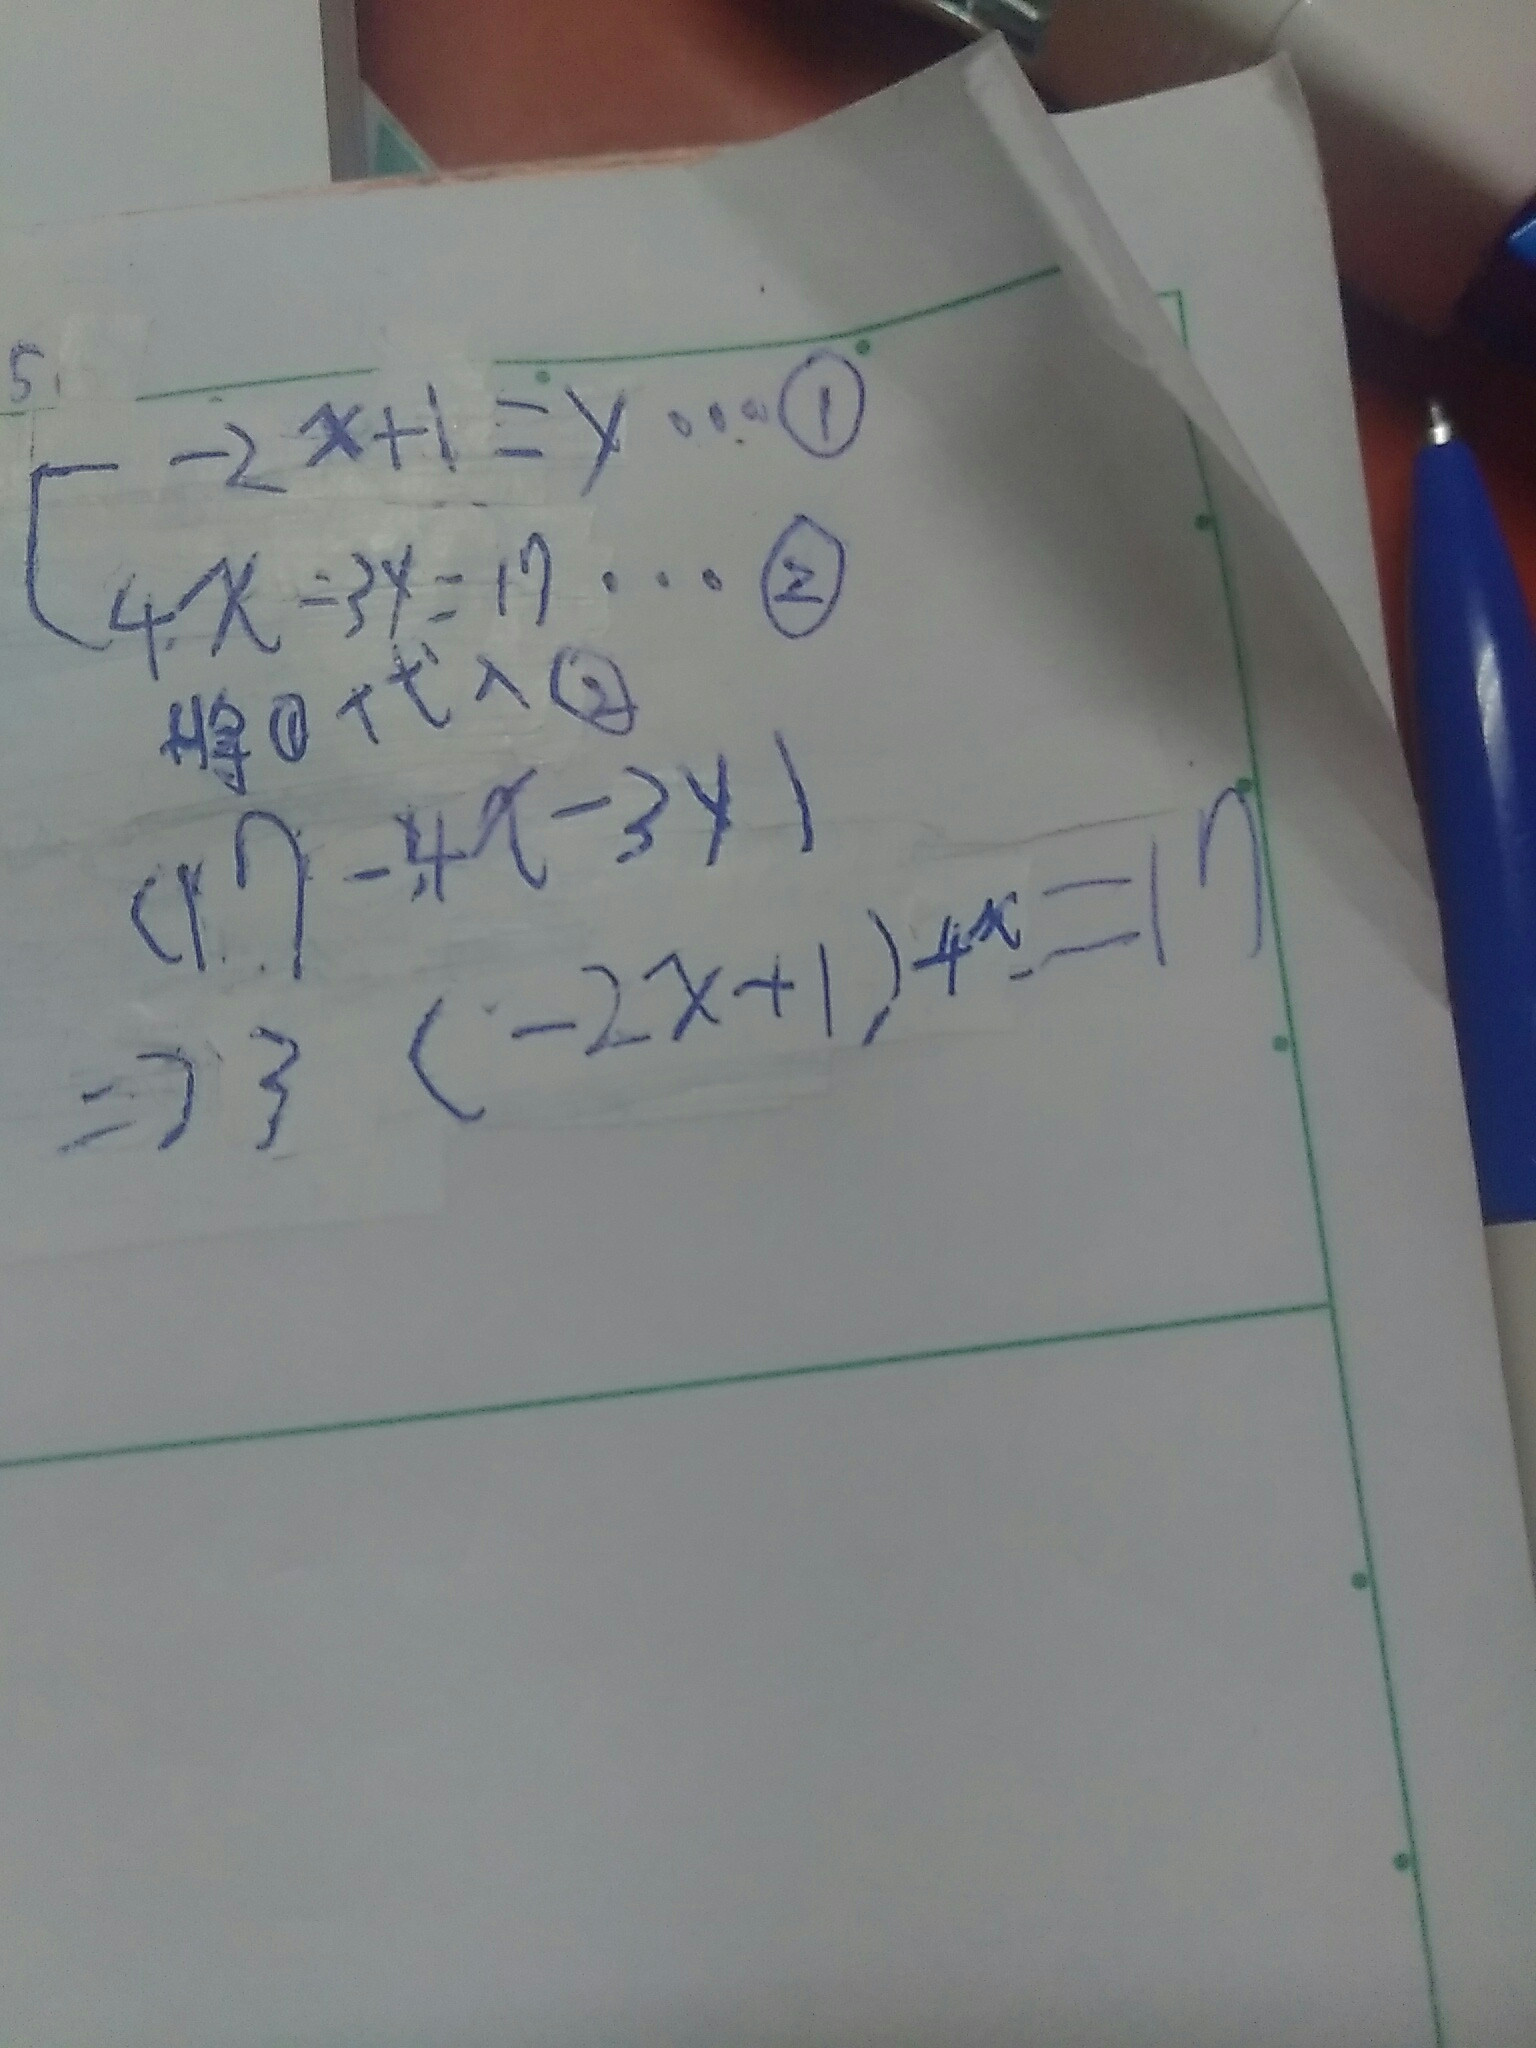 5.
-2x+1=y...①
4x-3y=17...②
將①代入②
(17-4x-3y)
=>3(-2x+1)-4x=17